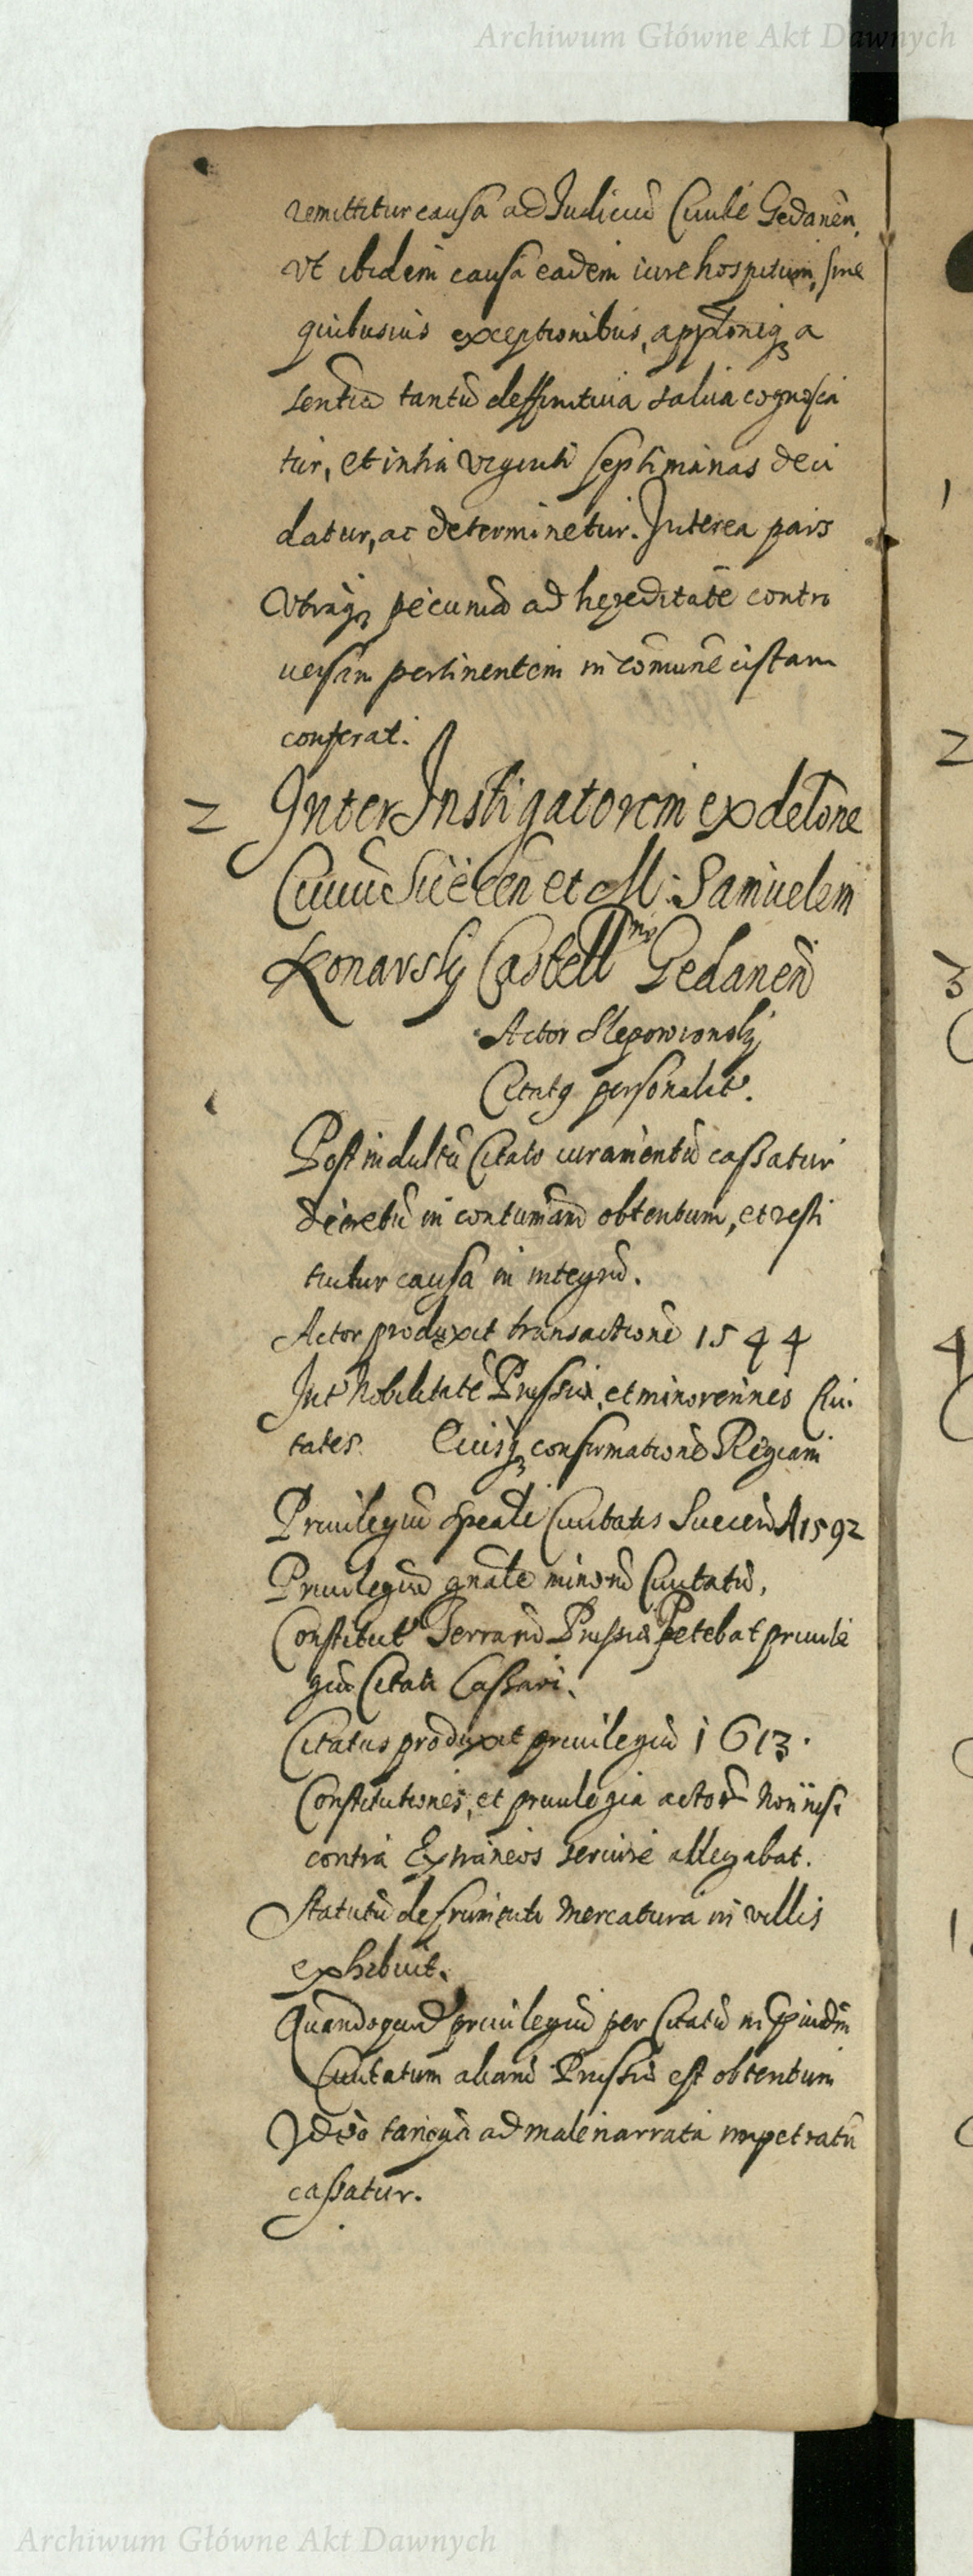 Archiwum Główne Akt Dawnych
remittitur causa ad Iudiciũ Ciuile Gedanẽn.
Vt ibidem causa eadem iure hospitum, sine
quibusuis exceptionibus, applõniq₃ a
sentia tantũ deffinitiua salua cognosca
tur, et intra viginti septimanas deci
datur, ac determinetur. Interea pars
Vtraq₃ pecuniã ad hereditatẽ contro
uersam pertinentem in cõmunẽ cistam
conferat.
2 Inter Instigatorem ex delõne
Ciuiũ Suecen et M: Samuelem
Konarsky Castell[mm] Gedanen̄
Actor Slepowronsky
Citatꝯ personalit.
Post indultũ Citato iuramentũ cassatur
decretũ in contumãm obtentum, et resti
tuitur causa in integrũ.
Actor produxit transactionẽ 1544
Int Nobilitatẽ Prussiæ, et minorennes Ciui
tates. Eiusq₃ confirmationẽ Regiam
Priuilegiũ speãle Ciuitatis Suecen̄ A 1592
Priuilegiũ gnãle minorũ Ciuitatũ,
Constitut Terrarũ Prussiæ Petebat priuile
giũ Citati Cassari.
Citatus produxit priuilegiũ 1613.
Constitutiones, et priuilegia actorũ non nisi
contra Extraneos seruire allegabat.
Statutũ de frumenti Mercatura in villis
exhibuit.
Quandoquid̃ priuilegiũ per Citatũ in p̱iudm̃
Ciuitatum aliarũ Prussiæ est obtentum
Ideo tanquã ad male narrata impetratũ
cassatur.
1
2
3
4
1.
Archiwum Główne Akt Dawnych